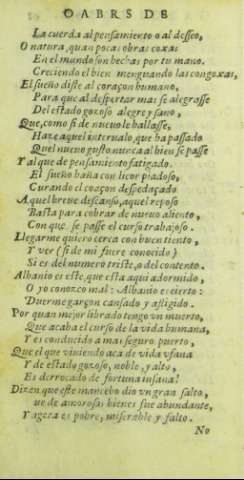 OABRS DE
La cuerda al pensamiento o al desseo,
O natura, quan pocas obras coxas
En el mundo son hechas por tu mano.
Creciendo el bien menguando las congoxas,
El sueño diste al coraçon humano,
Para que al despertar mas se alegrasse
Del estado gozoso alegre y sano,
Que, como si de nueuo le hallasse,
Haze aquel interualo, que ha passado
Quel nueuo gusto nunca al bien se passe
Y al que de pensamiento fatigado.
El sueño baña con licor piadoso,
Curando el coaçon despedaçado
Aquel breue descanso, aquel reposo
Basta para cobrar de nueuo aliento,
Con que se passe el curso trabajoso.
Llegarme quiero cerca con buen tiento,
Y ver (si de mi fuere conocido)
Si es del numero triste, o del contento.
Albanio es este, que esta aqui adormido,
O yo conozco mal: Albanio es cierto:
Duerme garçon cansado y afligido.
Por quan mejor librado tengo vn muerto,
Que acaba el curso de la vida humana,
Y es conducido a mas seguro puerto,
Que el que viuiendo aca de vida vfana
Y de estado gozoso, noble, y alto,
Es derrocado de fortuna insana!
Dizen que este mancebo dio vn gran salto,
ue de amorosos bienes fue abundante,
Y agora es pobre, miserable y falto.
No